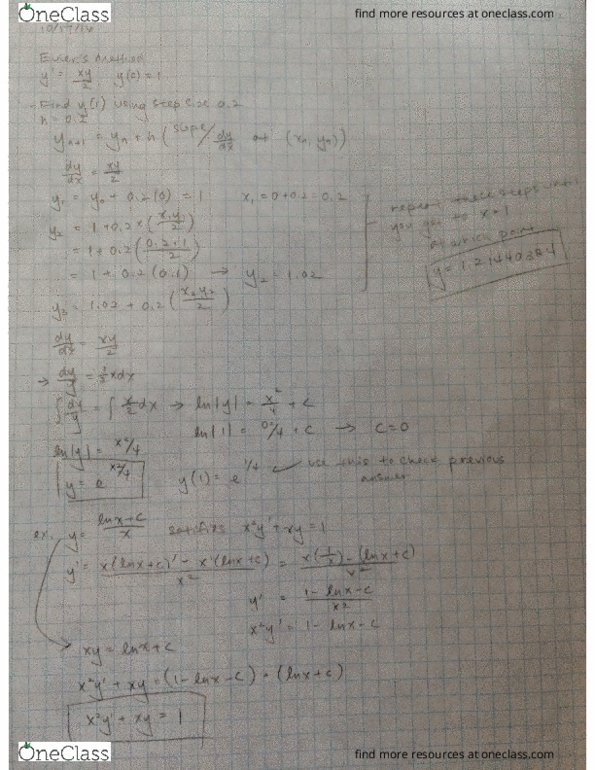 OneClass
find more resources at oneclass.com
10/17/16
Euler's method
y' = xy/2   y(0) = 1
Find y(1) using step size 0.2
h = 0.2
yn+1 = yn + h (slope/ dy/dx at (xn, yn))
dy/dx = xy/2
y1 = y0 + 0.2(0) = 1   x1 = 0+0.2 = 0.2
y2 = 1 + 0.2 × (x1y1/2)
= 1 + 0.2 (0.2·1/2)
= 1 + 0.2 (0.1) → y2 = 1.02
y3 = 1.02 + 0.2 (x2y2/2)
repeat these steps until
you get to x = 1
at which point
dy/dx = xy/2
→ dy/y = 1/2 x dx
∫ dy/y = ∫ x/2 dx → ln|y| = x²/4 + c
ln|1| = 0²/4 + c → c = 0
ln|y| = x²/4
y = e^(x²/4)   y(1) = e^(1/4) use this to check previous
answer
ex. y = lnx+c/x satisfies x²y' + xy = 1
y' = x(lnx+c)' - x'(lnx+c)/x² = x(1/x) - (lnx+c)/x²
y' = 1 - lnx - c/x²
x²y' = 1 - lnx - c
xy = lnx + c
x²y' + xy = (1 - lnx - c) + (lnx + c)
x²y' + xy = 1
OneClass
find more resources at oneclass.com